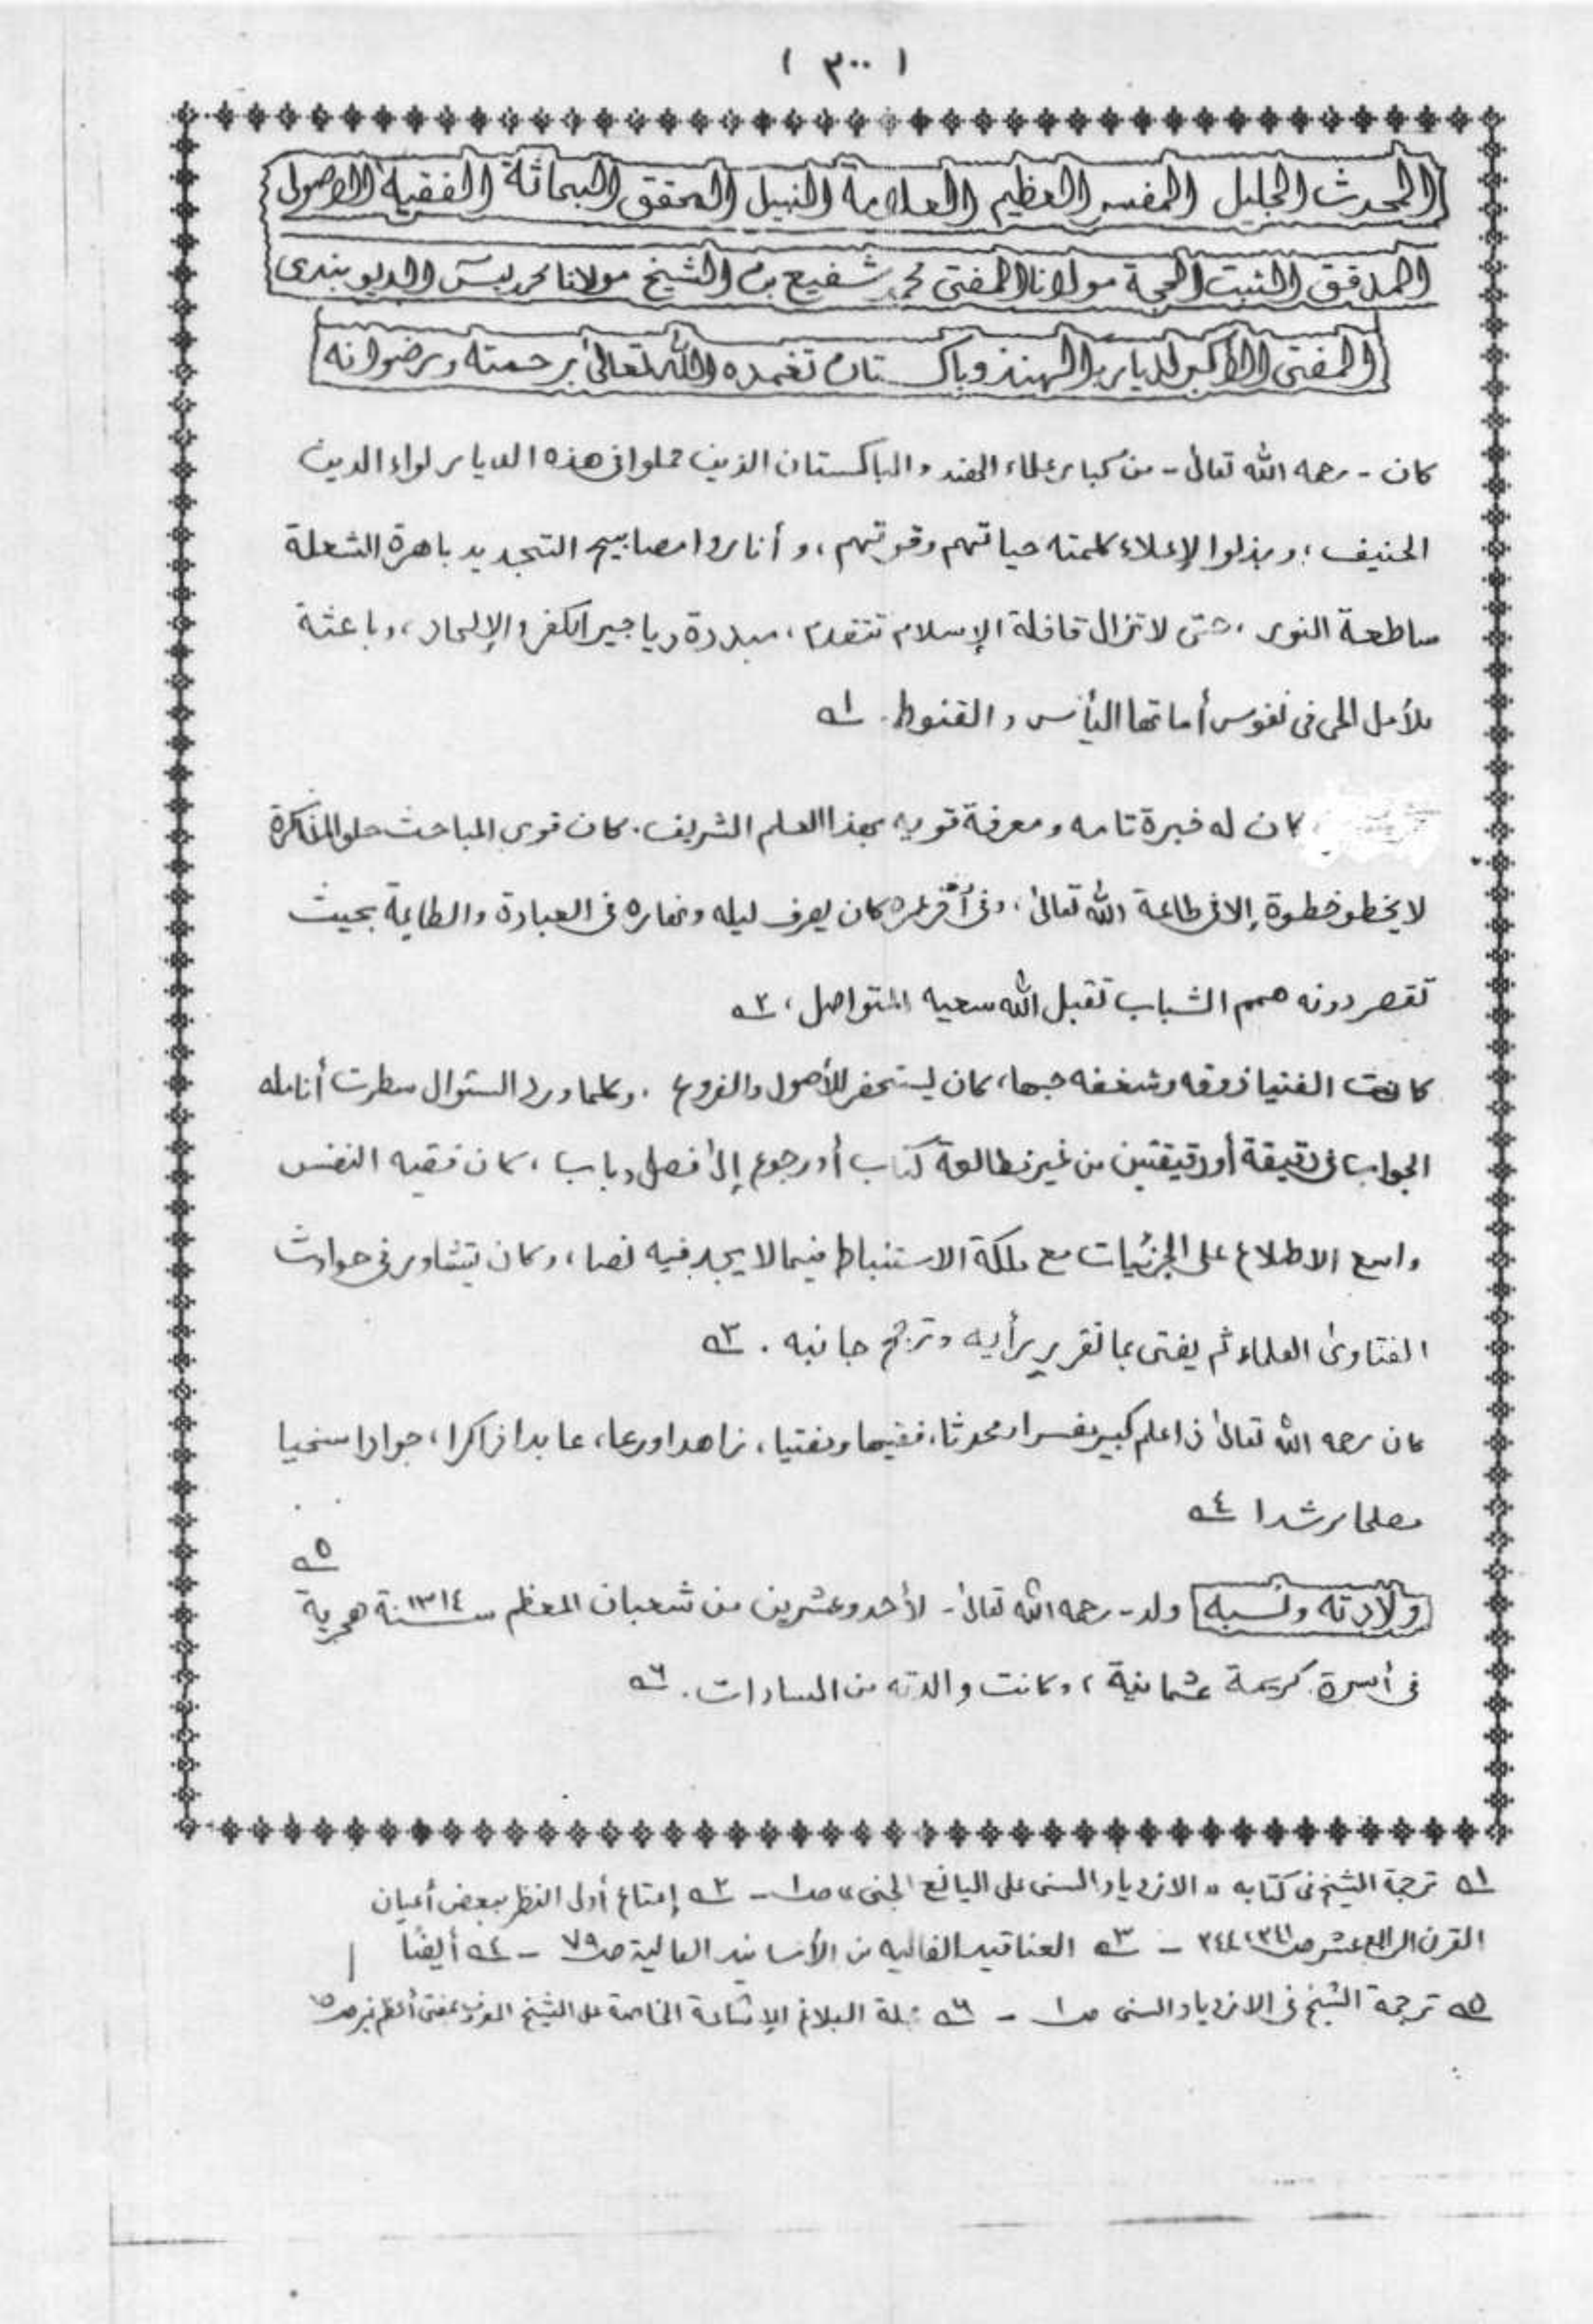 ( ٣٠٠ )
المحدث الجليل المفسر العظيم العلامة النبيل المحقق البحاثة الفقيه الاصولى
المدقق الثبت الحجة مولانا المفتى محمد شفيع بن الشيخ مولانا محمد يسٓ الديوبندى
المفتى الاكبر لديار الهند وباكستان تغمده الله تعالىٰ برحمته ورضوانه
كان - رحمه الله تعالىٰ - من كبار علماء الهند والباكستان الذين حملوا فى هذه الديار لواء الدين
الحنيف، وبذلوا لإعلاء كلمته حياتهم وقوتهم، و أناروا مصابيح التجديد باهرة الشعلة
ساطعة النور، حتى لا تزال قافلة الإسلام تتقدم، مبددة دياجير الكفر والإلحاد، وباعثة
للأمل الحى فى نفوس أماتها اليأس والقنوط. ١ھ
كان له خبرة تامه ومعرفة قويه بهذا العلم الشريف. كان قوى المباحث حلو المذاكرة
لا يخطو خطوة إلا فى طاعة الله تعالىٰ، وفى أخر عمره كان يصرف ليله ونهاره فى العبادة والطاعة بحيث
تقصر دونه همم الشباب تقبل الله سعيه المتواصل، ٢ھ
كانت الفتيا ذوقه وشغفه حبها، كان يستحضر للأصول والفروع. وكلما ورد السئوال سطرت أنامله
الجواب فى دقيقة أو دقيقتين من غير مطالعة كتاب أو رجوع إلىٰ فصل وباب، كان فقيه النفس
واسع الاطلاع على الجزئيات مع ملكة الاستنباط فيما لا يجد فيه نصا، وكان يتشاور فى حوادث
الفتاوىٰ العلماء ثم يفتى بما تقرير رأيه وترجح جانبه. ٣ھ
كان رحمه الله تعالىٰ ذا علم كبير مفسرا ومحدثا، فقيها ومفتيا، زاهدا ورعا، عابدا ذاكرا، جوادا سخيا
مصلحا مرشدا ٤ھ
ولادته ونسبه ولد - رحمه الله تعالىٰ - لأحد وعشرين من شعبان المعظم سنة ١٣١٤ هجرية ٥ھ
فى أسرة كريمة عثمانية، وكانت والدته من السادات. ٦ھ
١ھ ترجمة الشيخ فى كتابه " الازدياد السنى على اليانع الجنى " صـ ١ - ٢ھ إمتاع أولى النظر ببعض أعيان
القرن الرابع عشر صـ ٣٤١، ٣٤٤ - ٣ھ العناقيد الغاليه من الأسانيد العالية صـ ٧٩ - ٤ھ أيضًا
٥ھ ترجمة الشيخ فى الازدياد السنى صـ ١ - ٦ھ مجلة البلاغ الإشاعة الخاصة على الشيخ المعروف بمفتى أعظم نمبر